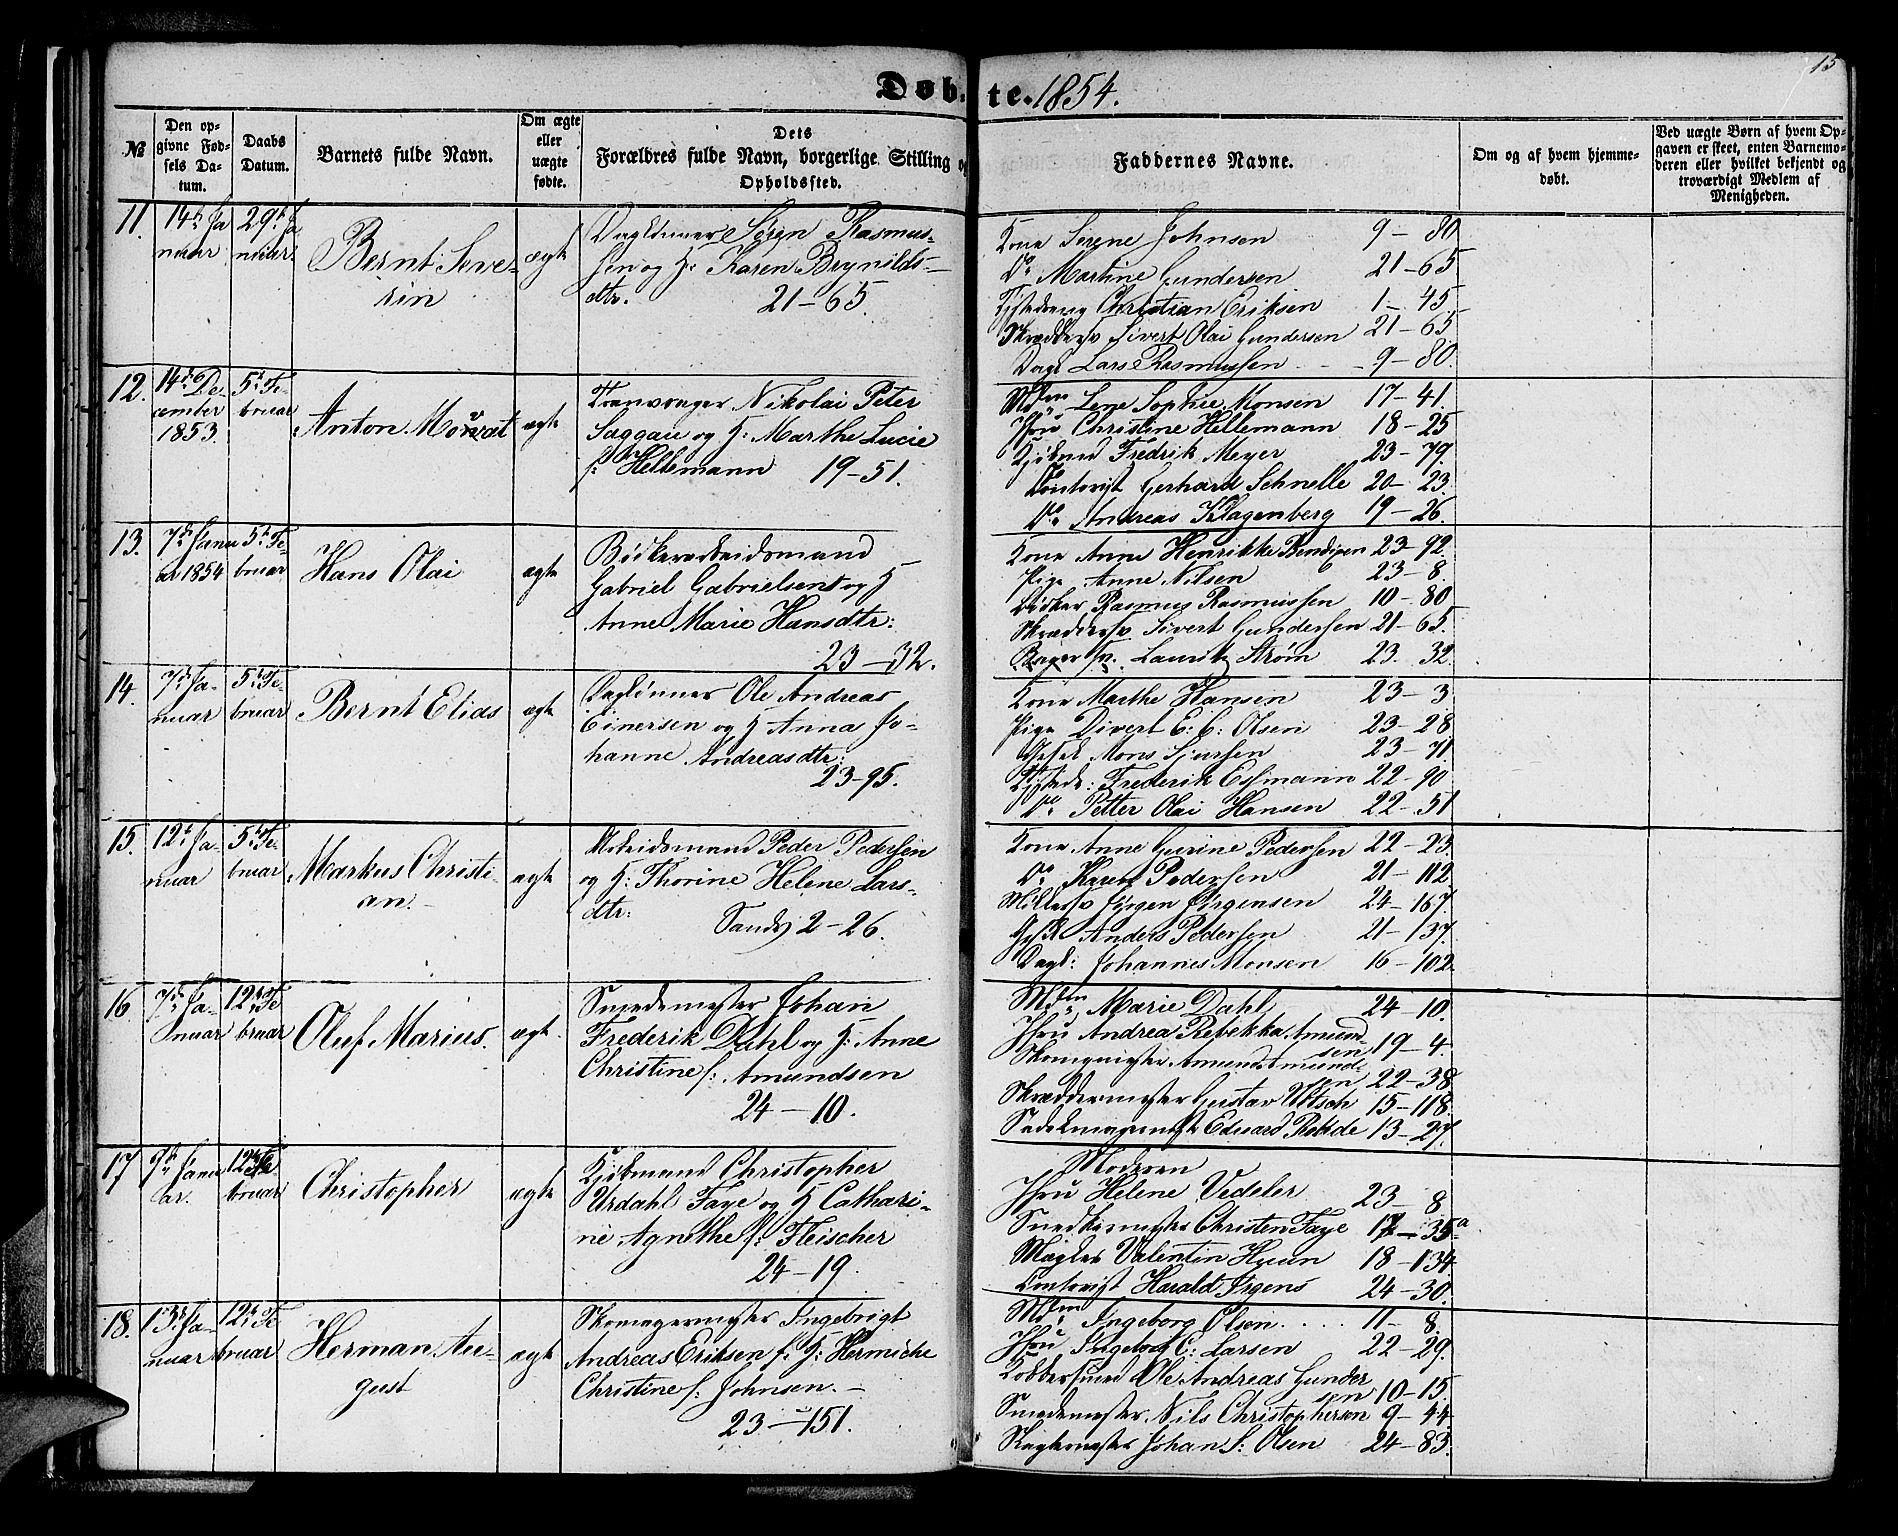 15
Døbte. 1854.
№
Den opgivne Fødsels Datum.
Daabs Datum.
Barnets fulde Navn.
Om ægte eller uægte fødte.
Dets
Forældres fulde Navn, borgerlige Stilling og
Opholdssted.
Faddernes Navne.
Om og af hvem hjemmedøbt.
Ved uægte Børn af hvem Opgaven er skeet, enten Barnemoderen eller hvilket bekjendt og troværdigt Medlem af Menigheden.
11. 14de Januar 29de Januar
Bernt Severin
ægte
Dagldnner Søren Rasmussen og H: Karen Brynilds-
dtr. 21-65.
Kone Serene Johnsen 9-80
Do Martine Gundersen 21-65
Christian Eriksen 1-45
Skræddersv Sivert Olai Gundersen 21-65
Dagl Lars Rasmussen 9-80.
12. 14de December 1853. 5te Februar
Anton Morvat
ægte
Nikolai Peter
Saggau og H: Marthe Lucie
f: Hellemann 19-51.
Mdm Lene Sophie Monsen 17-41.
Jfru Christine Hellemann 18-25
Kjøbmd Fredrik Meyer 23-79
Contorist Gerhard Schnelle 20-23
Do Andreas Klagenberg 19-26.
13. 7de Januar 1854 5te Februar
Hans Olai
ægte
Bødkerarbeidsmand
Gabriel Gabrielsen og H
Anne Marie Hansdtr:
23-32.
Kone Anne Henrikke Bendixen 23-92.
Pige Anne Nilsen 23-8.
Bødker Rasmus Rasmussen 10-80
Skræddersv Sivert Gundersen 21-65.
Bager sv. Lauritz Strøm 23. 32
14. 7de Januar 5te Februar
Bernt Elias
ægte
Daglønner Ole Andreas
Einersen og H Anna Jo-
hanne Andreasdtr:
23-95.
Kone Marthe Hansen 23-3
Pige Divert E: C: Olsen 23-28
Mons Sjursen 23-71
Frederik Essmann 22-90
Do Petter Olai Hansen 22-51
15. 12te Januar 5te Februar
Markus Christian.
ægte
Arbeidsmand Peder Pedersen
og H: Thorine Helene Lars-
dtr: Sandv 2-26.
Kone Anne Gurine Pedersen 22-23.
Do Karen Pedersen 21-112
Møllersv Jørgen Jørgensen 24-167.
Anders Pedersen 21-137
Dagl: Johannes Monsen 16-102
16. 7de Januar 12te Februar
Oluf Marius.
ægte
Smedemester Johan
Frederik Dahl og H: Anne
Christine f: Amundsen
24-10.
Mdm Marie Dahl 24-10.
Jfru Andrea Rebekka Amund-
sen 19-4.
Skomagmester Amund Amund-
sen 22-38
Skræddermester Gustav Utsch 15-118.
Sadelmagermest Eduard Rekde 13-27.
17 9de Januar. 12te Februar
Christopher
ægte
Kjøbmand Christopher
Urdahl Faye og H Cathari-
ne Agnethe f: Fleischer
24-19.
Moderen
Jfru Helene Vedeler 23-8
Snedkermester Christen Faye 12-35a
Mægler Valentin Huun 18-134
Contorist Harald Irgens 24-30.
18. 13de Januar 12te Februar
Herman August
ægte
Skomagermester Ingebrigt
Andreas Eriksen f. H: Hermiche
Christine f: Johnsen.
23-151.
Mdm Ingeborg Olsen.... 11-8.
Jfru Ingeborg C: Larsen 22-29.
Kobbersmed Ole Andreas Gunder
sen 10-15.
Smedemester Nils Christophersen 9-44
Johan S: Olsen 24-83.